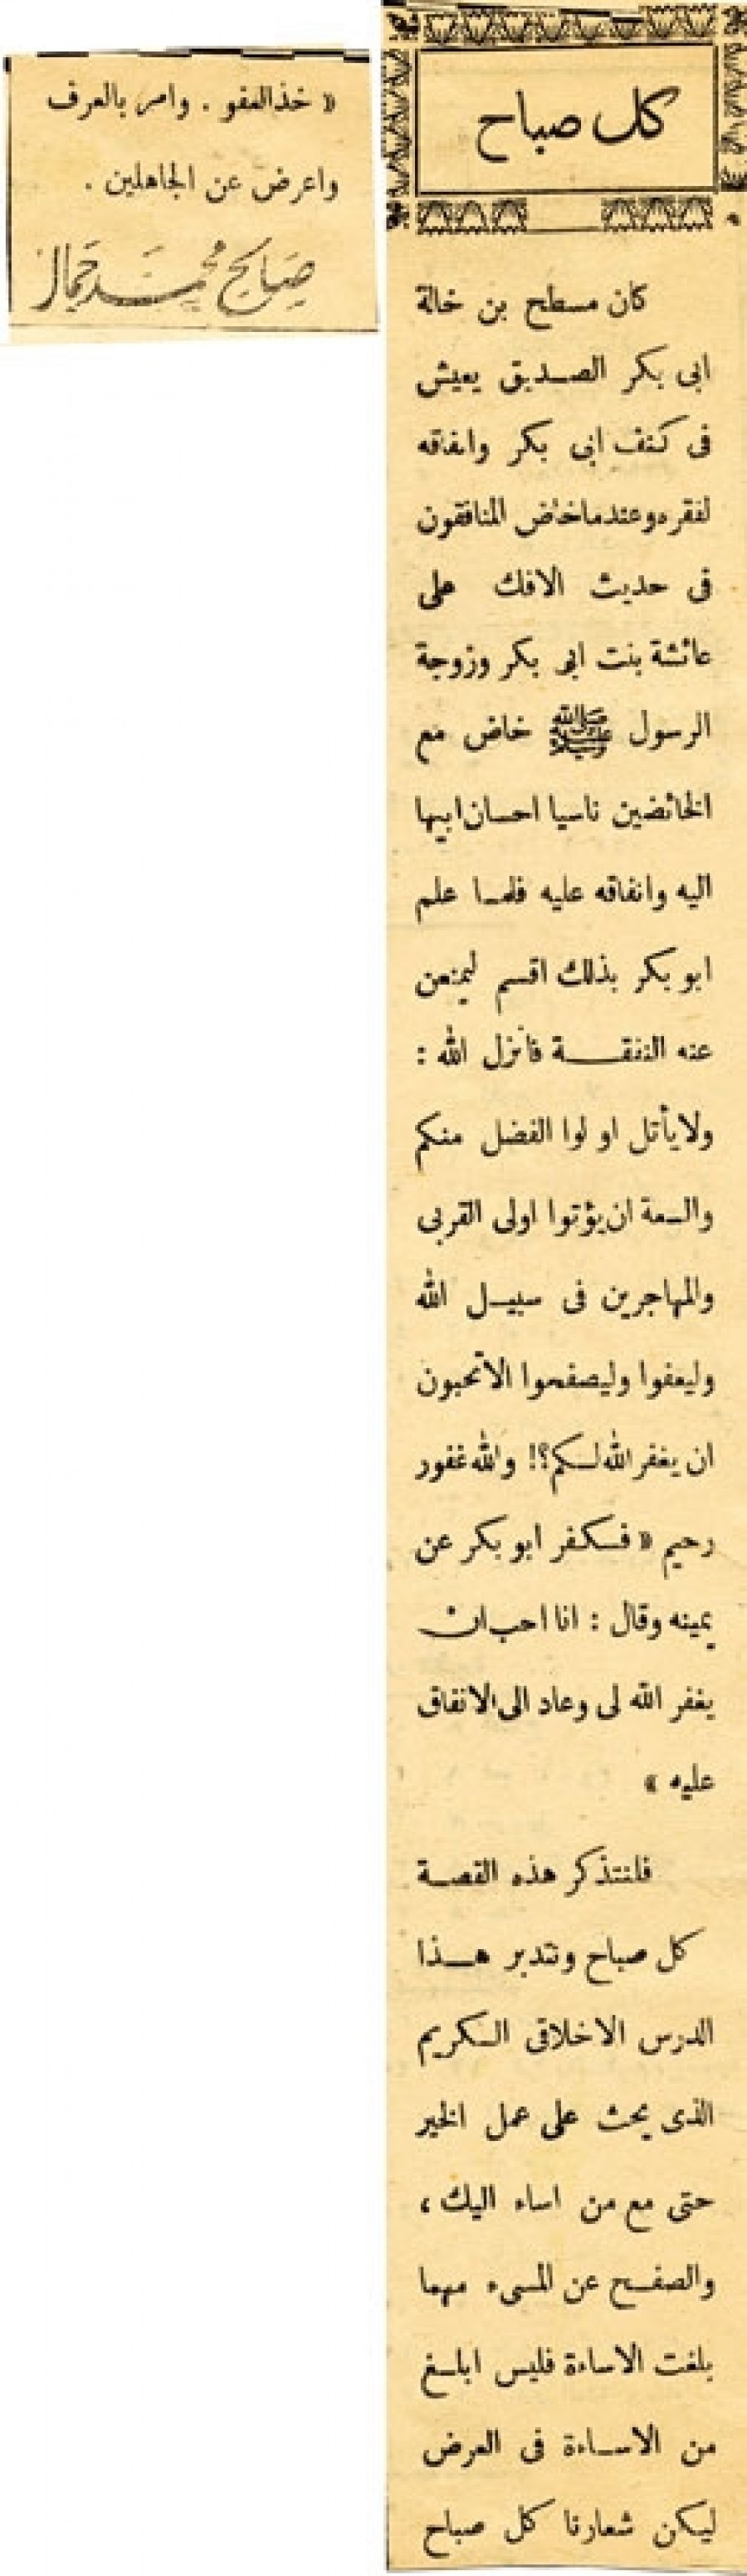 كل صباح
كان مسطح بن خالة
ابى بكر الصديق يعيش
فى كنف ابى بكر وانفاقه
لفقره وعندما خاض المنافقون
فى حديث الافك على
عائشة بنت ابى بكر وزوجة
الرسول ﷺ خاض مع
الخائضين ناسيا احسان ابيها
اليه وانفاقه عليه فلما علم
ابو بكر بذلك اقسم ليمنعن
عنه النفقة فانزل الله :
ولا يأتل او لوا الفضل منكم
والسعة ان يؤتوا اولى القربى
والمهاجرين فى سبيل الله
وليعفوا وليصفحوا الا تحبون
ان يغفر الله لكم؟! والله غفور
رحيم « فكفر ابو بكر عن
يمينه وقال : انا احب ان
يغفر الله لى وعاد الى الانفاق
عليه »
فلنتذكر هذه القصة
كل صباح ونتدبر هذا
الدرس الاخلاقى الكريم
الذى يحث على عمل الخير
حتى مع من اساء اليك ،
والصفح عن المسىء مهما
بلغت الاساءة فليس ابلغ
من الاساءة فى العرض
ليكن شعارنا كل صباح
« خذ العفو . وامر بالعرف
واعرض عن الجاهلين .
صالح محمد جمال